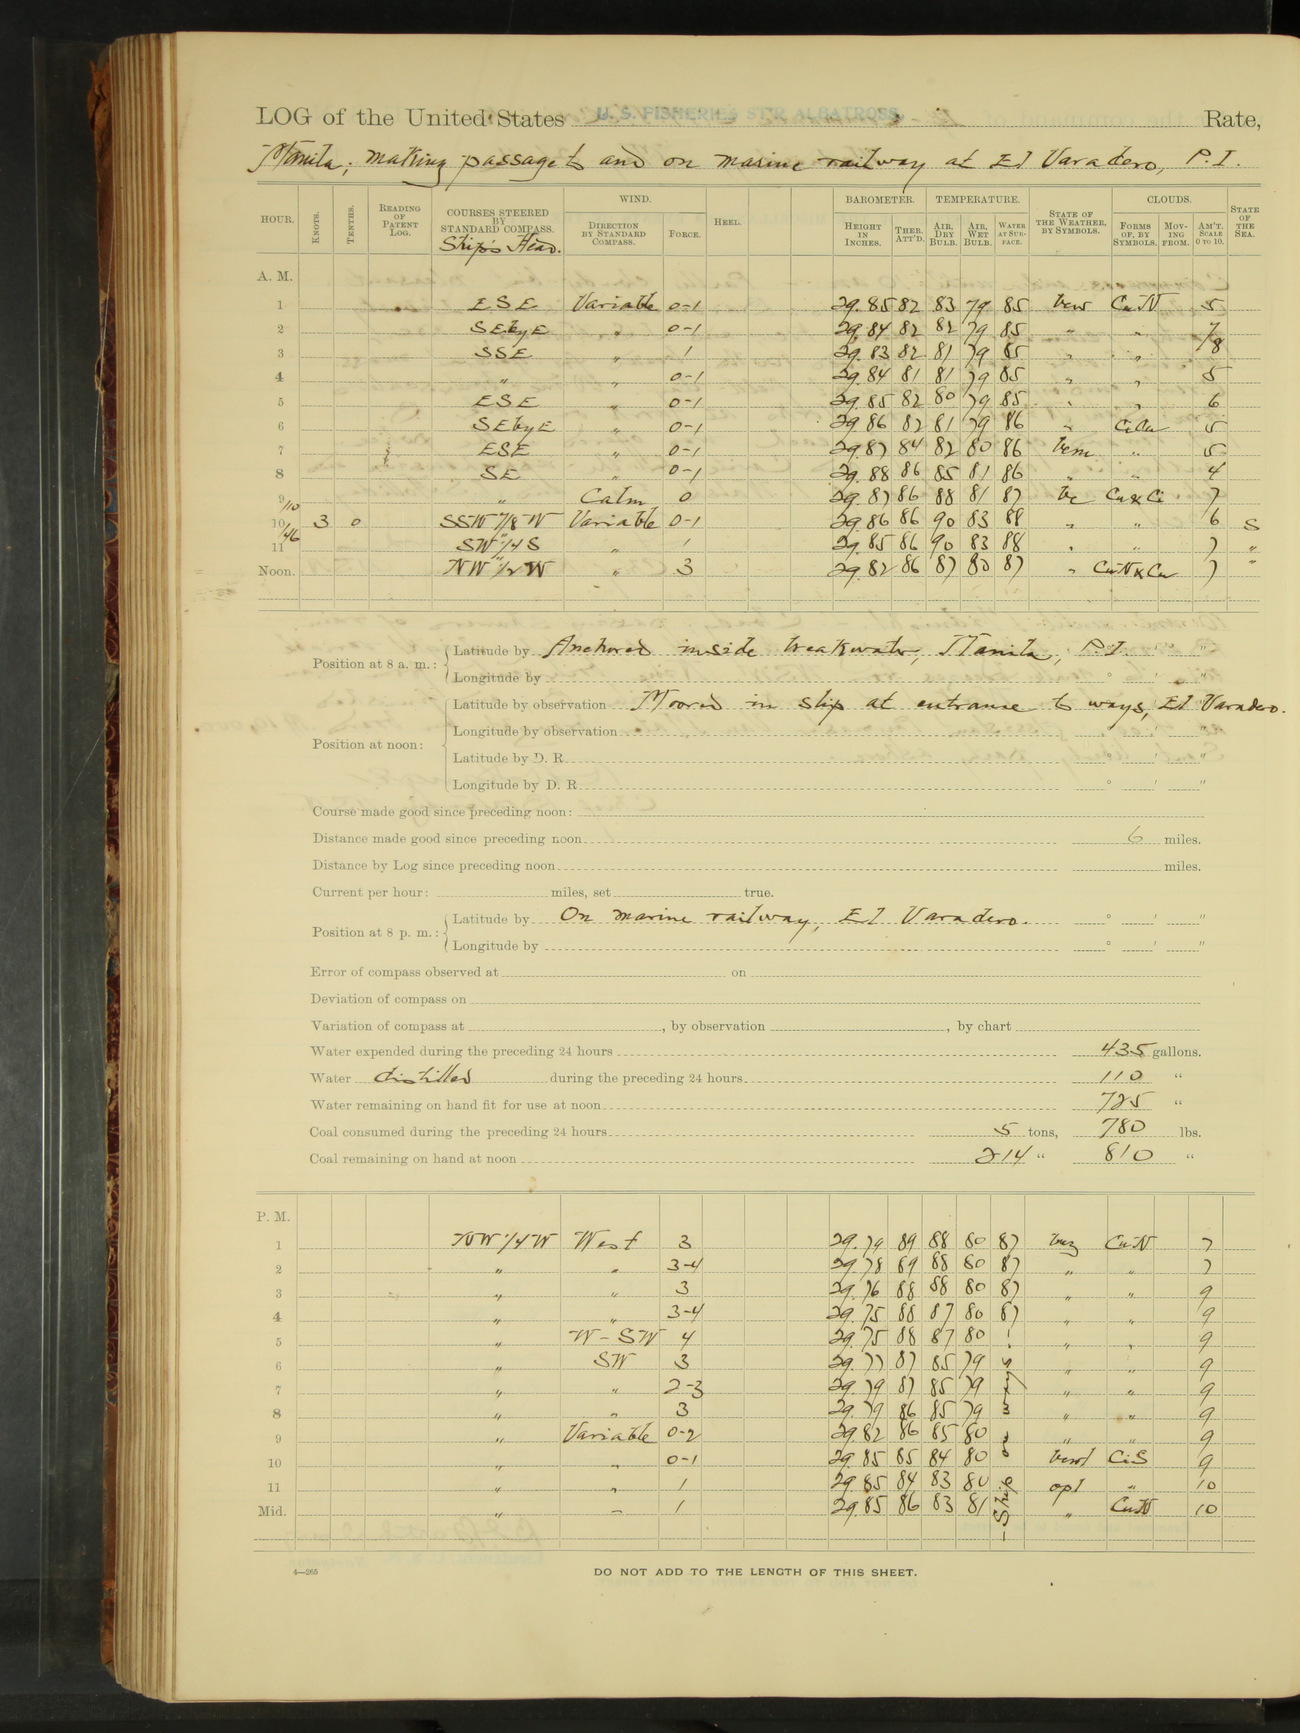 LOG of the United States U. S. FISHERIES STR ALBATROSS Rate,
Manila; making passage to and on marine railway at El Varadero, P. I.
HOUR. KNOTS. TENTHS. READING OF PATENT LOG. COURSES STEERED BY STANDARD COMPASS. Ship's Head. WIND. DIRECTION BY STANDARD COMPASS. FORCE. HEEL. BAROMETER. HEIGHT IN INCHES. THER. ATT'D. TEMPERATURE. AIR, DRY BULB. AIR, WET BULB. WATER AT SURFACE. STATE OF THE WEATHER, BY SYMBOLS. CLOUDS. FORMS OF, BY SYMBOLS. MOVING FROM. AM'T. SCALE 0 TO 10. STATE OF THE SEA.
A. M.
1 ESE Variable 0-1 29.85 82 83 79 85 Cu N 5
2 SEbyE " 0-1 29.84 82 82 79 85 " " 7
3 SSE " 1 29.83 82 81 79 85 " " 8
4 " " 0-1 29.84 81 81 79 85 " " 5
5 ESE " 0-1 29.85 82 80 79 85 " " 6
6 SEbyE " 0-1 29.86 82 81 79 86 " Ci Cu 5
7 ESE " 0-1 29.87 84 82 80 86 bcm " 5
8 SE " 0-1 29.88 86 85 81 86 " " 4
9 " Calm 0 29.87 86 88 81 87 bc Cu & Ci 7
9/10
10 3 0 SSW 7/8 W Variable 0-1 29.86 86 90 83 88 " " 6 S
/46
11 SW 1/4 S " 1 29.85 86 90 83 88 " " 7 "
Noon. NW 1/2 W " 3 29.82 86 87 80 87 " Cu N & Cu 7 "
Position at 8 a. m.: Latitude by Anchored inside breakwater, Manila, P. I.
Longitude by
Position at noon: Latitude by observation Moored in slip at entrance to ways, El Varadero.
Longitude by observation
Latitude by D. R.
Longitude by D. R.
Course made good since preceding noon:
Distance made good since preceding noon 6 miles.
Distance by Log since preceding noon miles.
Current per hour: miles, set true.
Position at 8 p. m.: Latitude by On marine railway, El Varadero.
Longitude by
Error of compass observed at on
Deviation of compass on
Variation of compass at , by observation , by chart
Water expended during the preceding 24 hours 435 gallons.
Water distilled during the preceding 24 hours 110 "
Water remaining on hand fit for use at noon 725 "
Coal consumed during the preceding 24 hours 5 tons, 780 lbs.
Coal remaining on hand at noon 214 " 810 "
P. M.
1 NW 1/4 W West 3 29.79 89 88 80 87 Cu N 7
2 " " 3-4 29.78 89 88 80 87 " " 7
3 " " 3 29.76 88 88 80 87 " " 9
4 " " 3-4 29.75 88 87 80 87 " " 9
5 " W-SW 4 29.75 88 87 80 " " 9
6 " SW 3 29.77 87 85 79 " " 9
7 " " 2-3 29.79 87 85 79 " " 9
8 " " 3 29.79 86 85 79 " " 9
9 " Variable 0-2 29.82 86 85 80 " " 9
10 " " 0-1 29.85 85 84 80 Ci S 9
11 " " 1 29.85 84 83 80 opl " 10
Mid. " " 1 29.85 86 83 81 " Cu N 10
Ship on ways
4—265
DO NOT ADD TO THE LENGTH OF THIS SHEET.